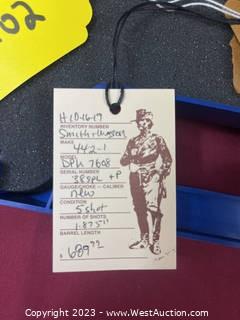 02
H10-16-19
INVENTORY NUMBER
Smith & Wesson
MAKE
442-1
MODEL
DPU 7608
SERIAL NUMBER
38SPL +P
GAUGE/CHOKE — CALIBER
New
CONDITION
5 shot
NUMBER OF SHOTS
1.875"
BARREL LENGTH
$689
Copyright 2023 - www.WestAuction.com